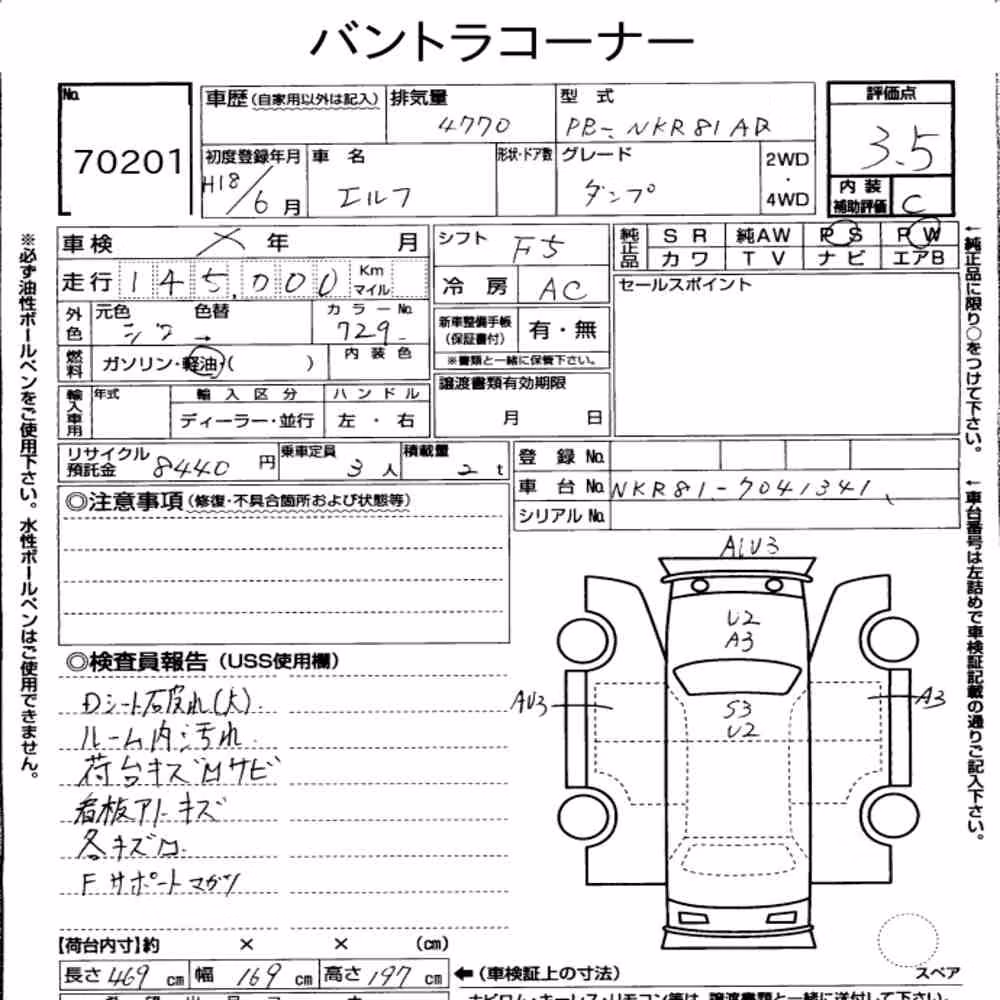 バントラコーナー
No. 70201
車歴(自家用以外は記入) 排気量 4770 型式 PB-NKR81AD
評価点 3.5
初度登録年月 H18/6月 車名 エルフ 形状・ドア数 グレード ダンプ 2WD・4WD
内装補助評価 C
車検 年 月
走行 145,000 Km マイル
外色 元色 シロ 色替 → カラーNo. 729
燃料 ガソリン・軽油・( ) 内装色
輸入車用 年式 輸入区分 ディーラー・並行 ハンドル 左・右
シフト F5
冷房 AC
新車整備手帳(保証書付) 有・無
※書類と一緒に保管下さい。
譲渡書類有効期限 月 日
純正品 SR 純AW PS PW
カワ TV ナビ エアB
セールスポイント
リサイクル預託金 8440円 乗車定員 3人 積載量 2t
登録No.
車台No. NKR81-7041341
シリアルNo.
◎注意事項(修復・不具合箇所および状態等)
◎検査員報告(USS使用欄)
Dシート石皮れ(大)
ルーム内汚れ
荷台キズ凹サビ
看板アト キズ
各キズ凹
Fサポートマガリ
A1U3
U2
A3
AU3
A3
S3
U2
【荷台内寸】約 × × (cm)
長さ 469cm 幅 169cm 高さ 197cm
←(車検証上の寸法)
スペア
※必ず油性ボールペンをご使用下さい。水性ボールペンはご使用できません。
←純正品に限り○をつけて下さい。
←車台番号は左詰めで車検証記載の通りご記入下さい。